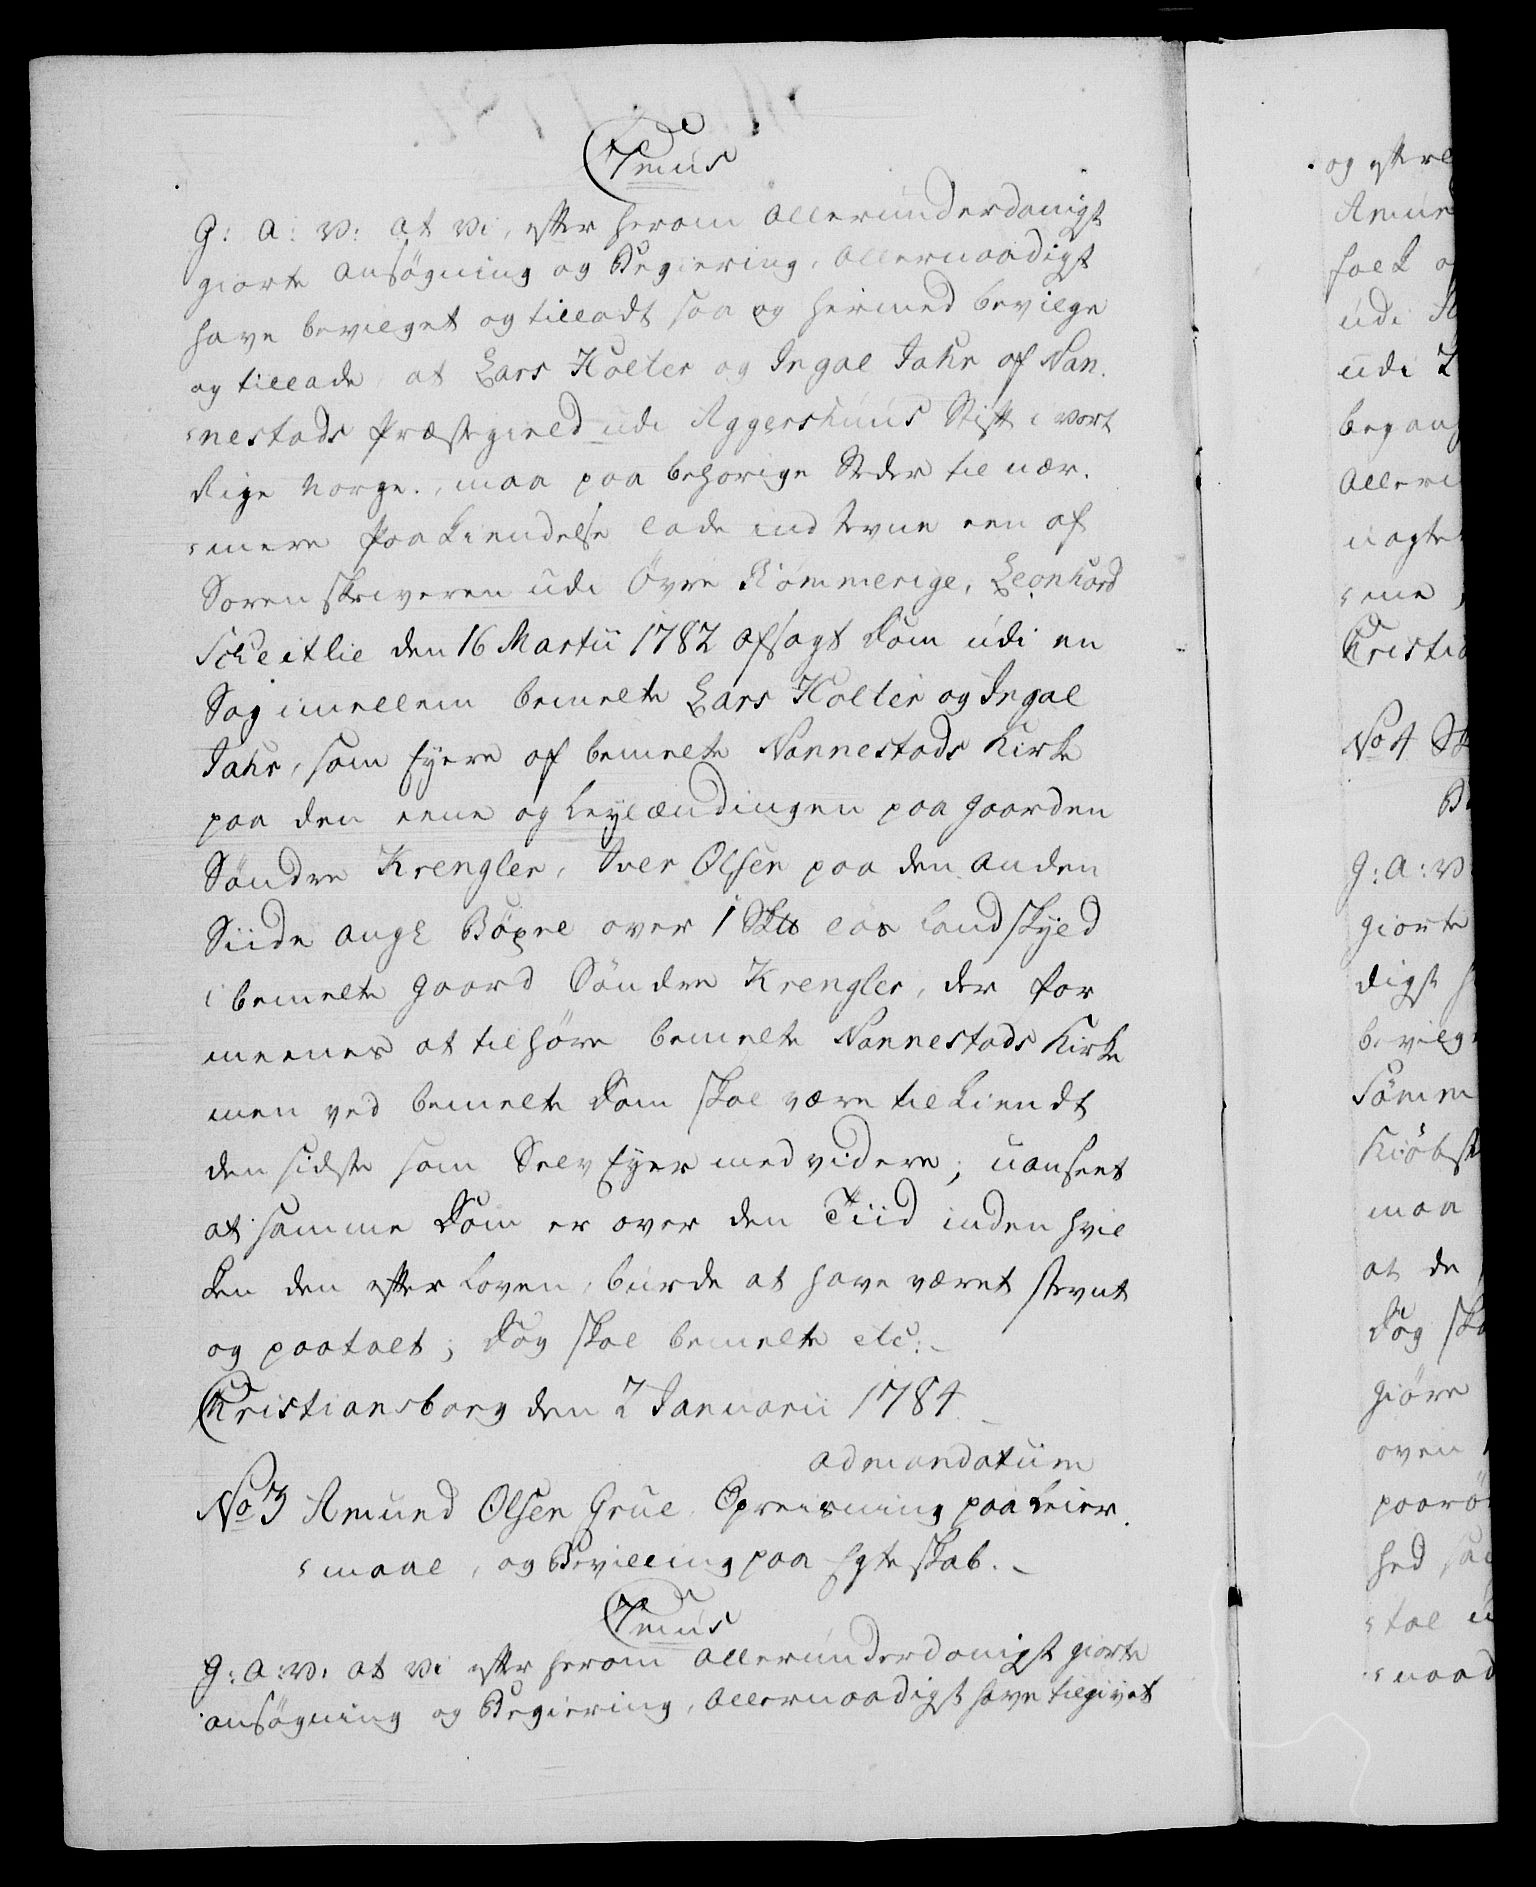 C7mus
G: A: V: at Vi, efter herom Allerunderdanigst
giorte Ansögning og Begiering, Allernaadigst
have bevilget og tilladt saa og hermed bevilge
og tillade, at Lars Holter og Ingal Jahr af Nan-
nestads Præstegield udi Aggershuus Stift i vort
Rige Norge, maa paa behörige Steder til nær-
mere Paakiendelse lade indstevne een af
Sorenskriveren udi Övre Rommerige, Leonhard
Scheitlie den 16 Martii 1782 afsagt Dom udi en
Sag imellem bemelte Lars Holter og Ingal
Jahr, som Eyere af bemelte Nannestads Kirke
paa den eene og Leylændingen paa Gaarden
Söndre Krengler, Iver Olsen paa den anden
Siide angl. Böxel over 1 Sk℔ lös Landskyld
i bemelte Gaard Söndre Krengler, der for
meenes at tilhöre bemelte Nannestads Kirke
men ved bemelte Dom skal være tilkiendt
den sidste som SelvEyer med videre; uanseet
at samme Dom er over den Tiid inden hvil
ken den efter Loven, burde at have været stevnt
og paatalt; Dog skal bemelte etc:
Christiansborg den 2 Januarii 1784
ad mandatum
No 3 Amund Olsen Grue Opreisning paa Leier-
maal, og Bevilling paa Egteskab.
C7mus
G: A: V: at Vi efter herom Allerunderdanigst giorte
Ansögning og Begiering, Allernaadigst have tilgivet
og efterl
Amun
folk o
udi
udi
begang
Alleru
nagte
me
Christia
No 4
G: A: V:
giorte
digst h
bevilg
Tömm
Kiöbst
maa
at de
Dog ska
giöre
oven
paarö
hed sa
tal u
naad